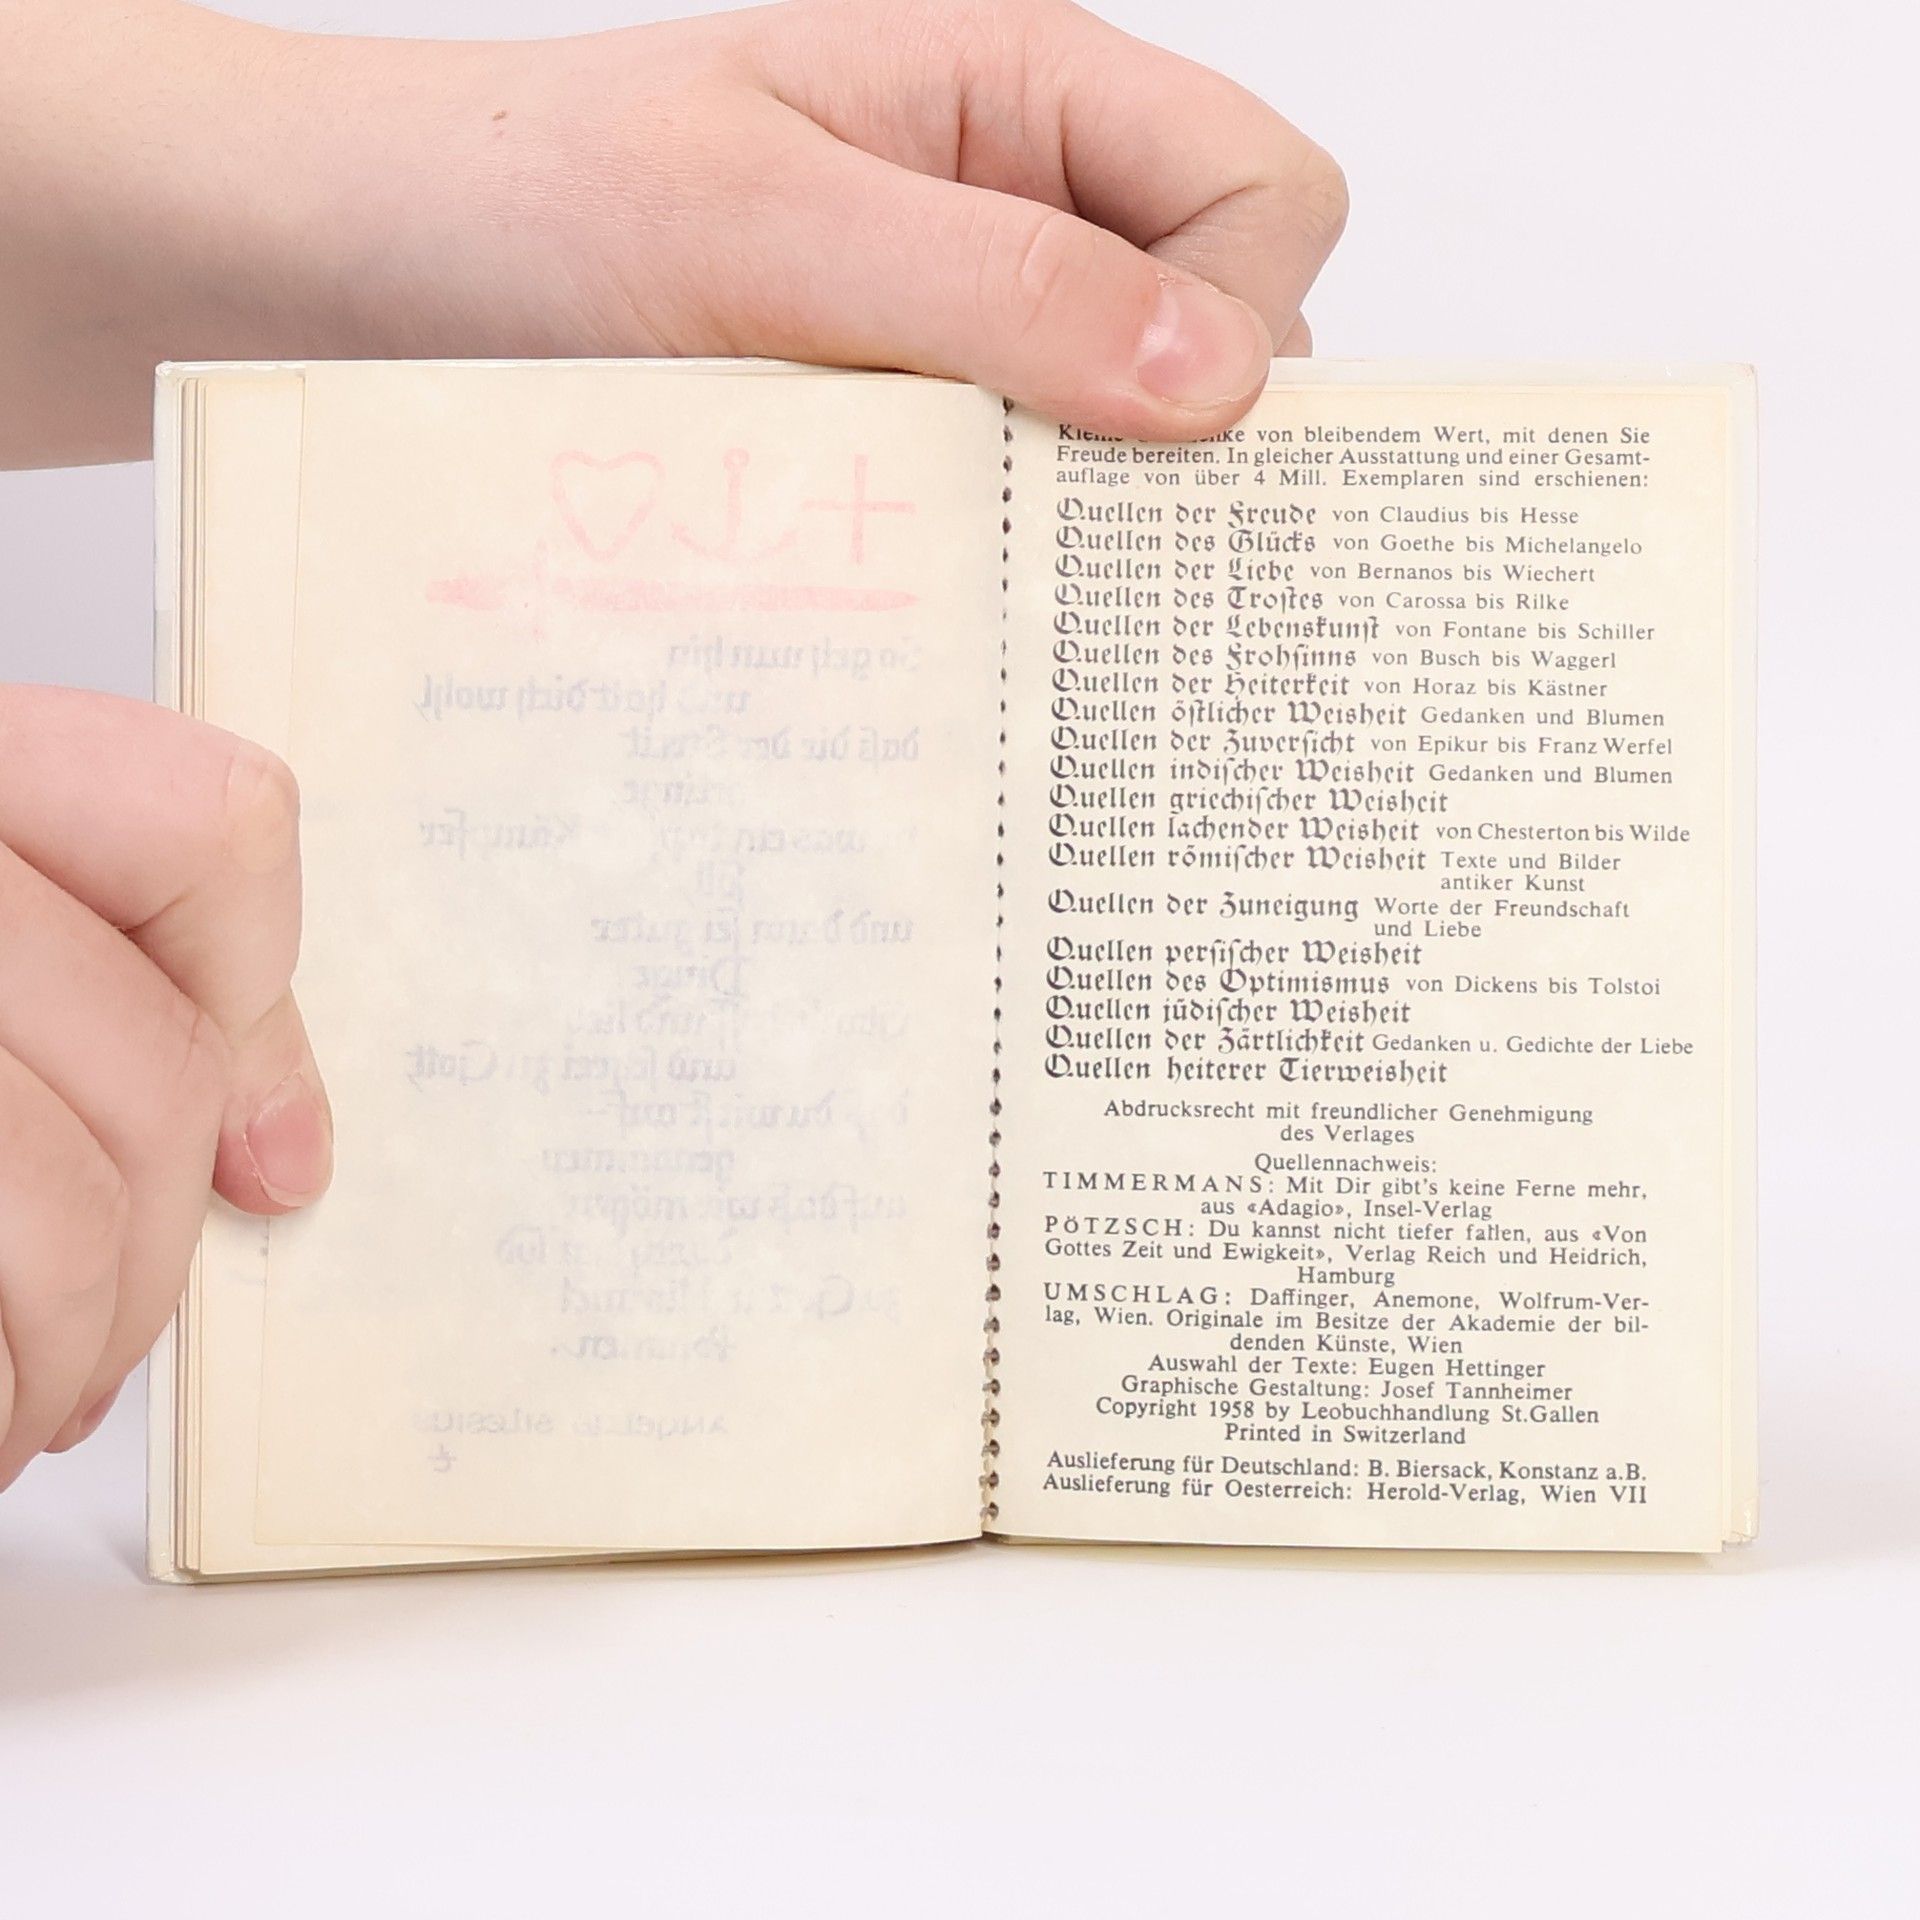 von bleibendem Wert, mit denen Sie
Freude bereiten. In gleicher Ausstattung und einer Gesamt-
auflage von über 4 Mill. Exemplaren sind erschienen:
Quellen der Freude von Claudius bis Hesse
Quellen des Glücks von Goethe bis Michelangelo
Quellen der Liebe von Bernanos bis Wiechert
Quellen des Trostes von Carossa bis Rilke
Quellen der Lebenskunst von Fontane bis Schiller
Quellen des Frohsinns von Busch bis Waggerl
Quellen der Heiterkeit von Horaz bis Kästner
Quellen östlicher Weisheit Gedanken und Blumen
Quellen der Zuversicht von Epikur bis Franz Werfel
Quellen indischer Weisheit Gedanken und Blumen
Quellen griechischer Weisheit
Quellen lachender Weisheit von Chesterton bis Wilde
Quellen römischer Weisheit Texte und Bilder
antiker Kunst
Quellen der Zuneigung Worte der Freundschaft
und Liebe
Quellen persischer Weisheit
Quellen des Optimismus von Dickens bis Tolstoi
Quellen jüdischer Weisheit
Quellen der Zärtlichkeit Gedanken u. Gedichte der Liebe
Quellen heiterer Tierweisheit
Abdrucksrecht mit freundlicher Genehmigung
des Verlages
Quellennachweis:
TIMMERMANS: Mit Dir gibt's keine Ferne mehr,
aus «Adagio», Insel-Verlag
PÖTZSCH: Du kannst nicht tiefer fallen, aus «Von
Gottes Zeit und Ewigkeit», Verlag Reich und Heidrich,
Hamburg
UMSCHLAG: Daffinger, Anemone, Wolfrum-Ver-
lag, Wien. Originale im Besitze der Akademie der bil-
denden Künste, Wien
Auswahl der Texte: Eugen Hettinger
Graphische Gestaltung: Josef Tannheimer
Copyright 1958 by Leobuchhandlung St.Gallen
Printed in Switzerland
Auslieferung für Deutschland: B. Biersack, Konstanz a.B.
Auslieferung für Oesterreich: Herold-Verlag, Wien VII